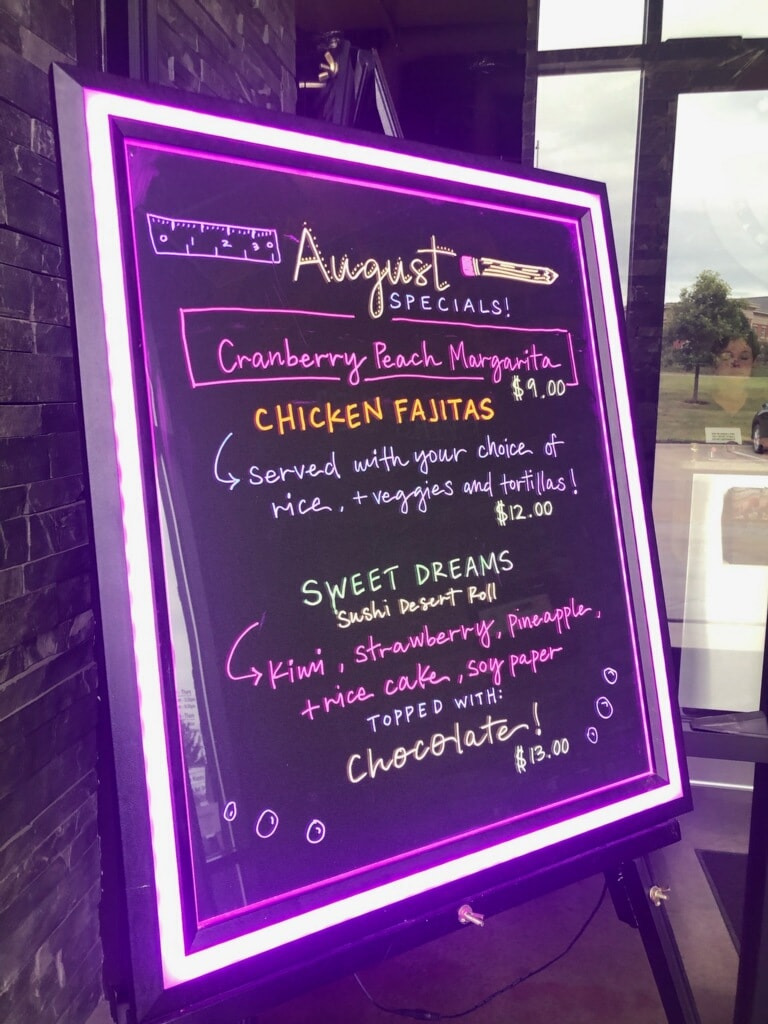 0 1 2 30
August
SPECIALS!
Cranberry Peach Margarita
$9.00
CHICKEN FAJITAS
served with your choice of
rice, + veggies and tortillas!
$12.00
SWEET DREAMS
Sushi Desert Roll
Kiwi, strawberry, pineapple,
+ rice cake, soy paper
TOPPED WITH:
Chocolate!
$13.00